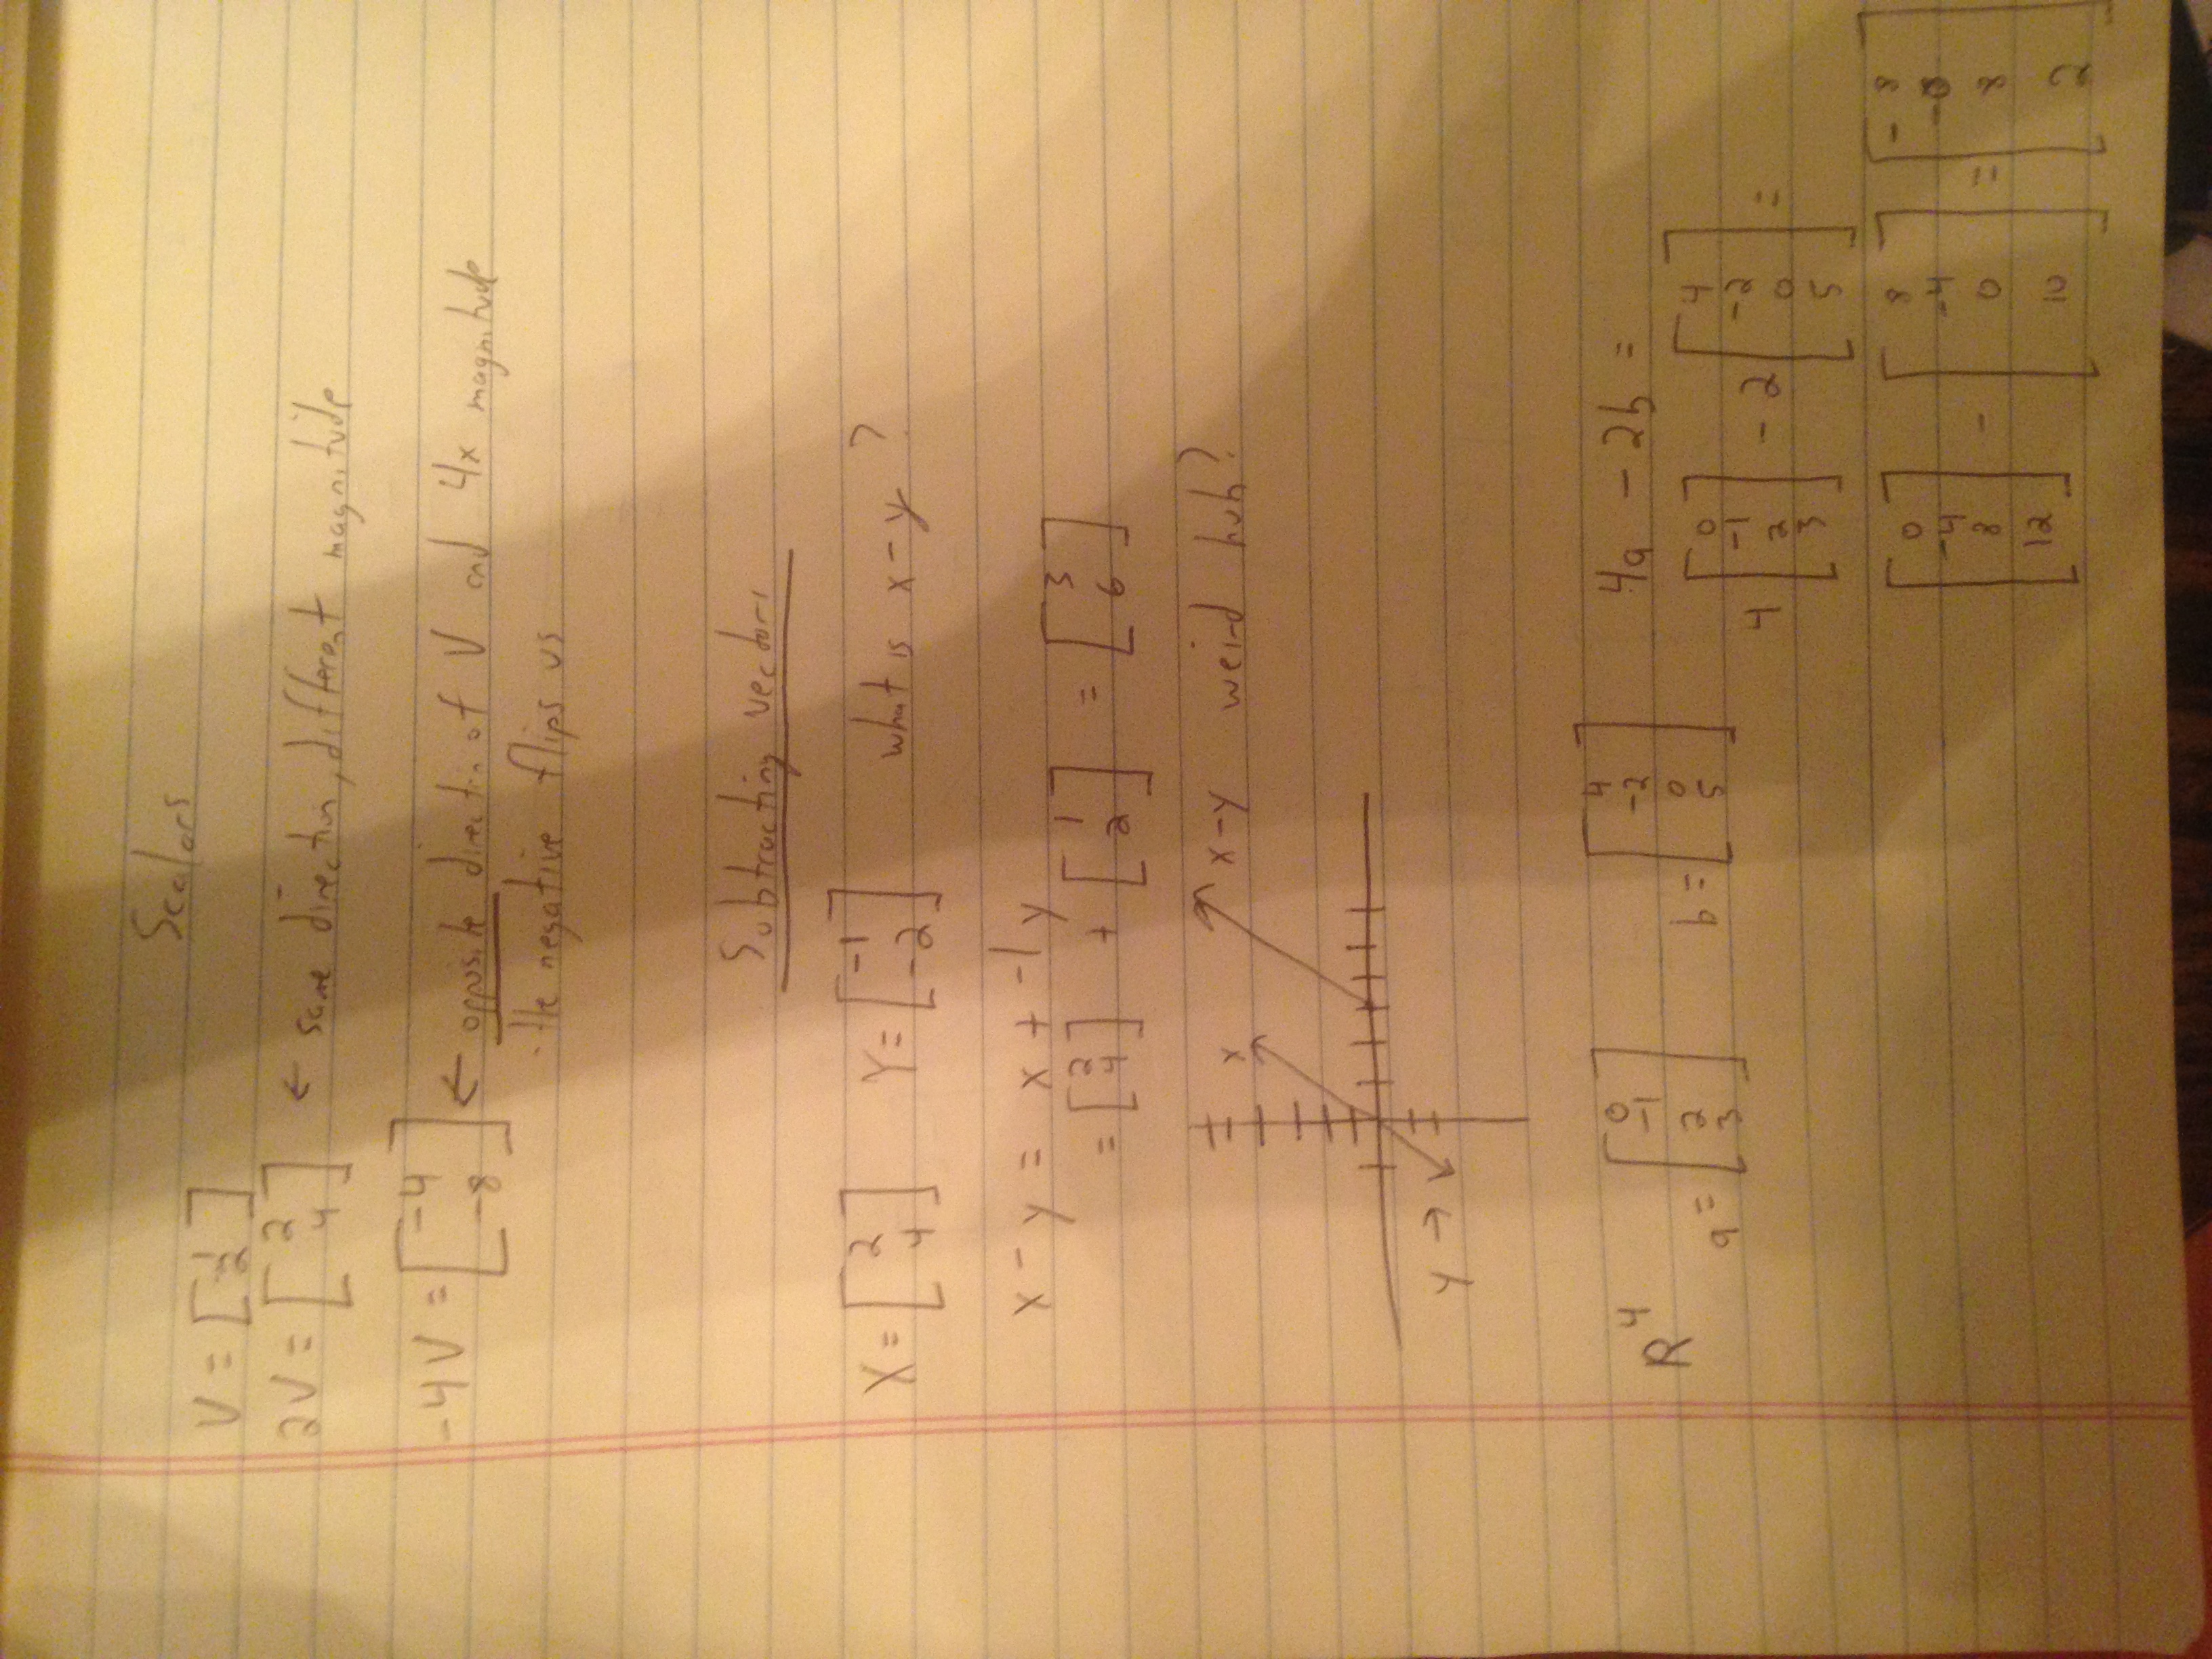 Scalars
V = [1 2]
2V = [2 4] ← same direction, different magnitude
-4V = [-4 -8] ← opposite direction of V and 4x magnitude
. the negative flips us
Subtracting vectors
X = [2 4] Y = [-1 -2] what is x - y ?
x - y = x + -1y
= [2 4] + [1 2] = [3 6]
x x-y weird huh?
y →
R⁴ a = [0 -1 2 3] b = [4 -2 0 5] 4a - 2b =
4 [0 -1 2 3] - 2 [4 -2 0 5] =
[0 -4 8 12] - [8 -4 0 10] = [-8 0 8 2]